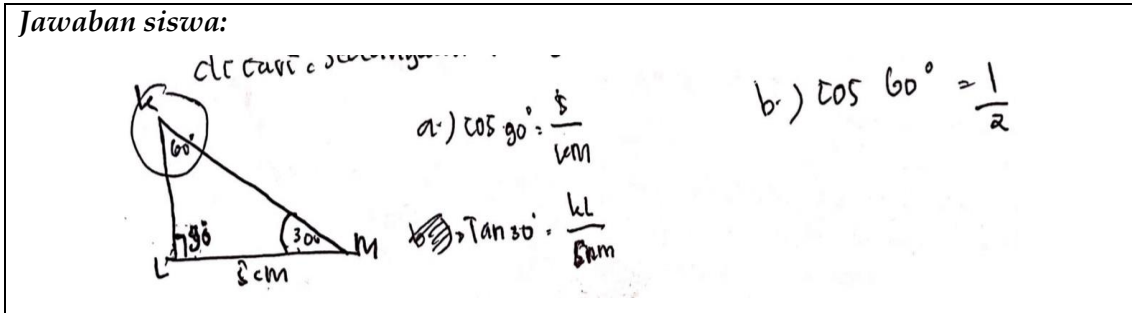 Jawaban siswa:
K
60°
90°
30°
L
5 cm
M
a.) cos 90° = 5 / KM
Tan 30° = KL / 5 cm
b.) cos 60° = 1 / 2